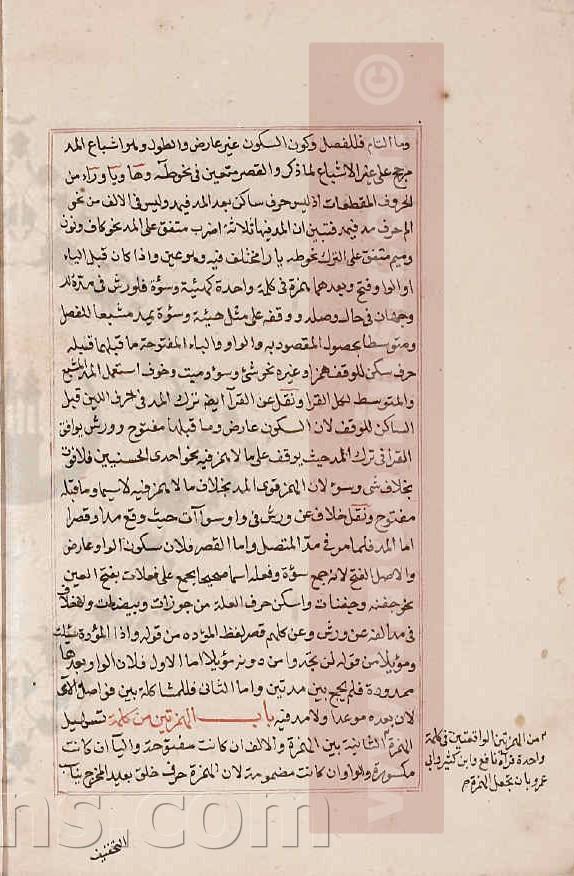 وما اللام فللفصل وكون السكون غير عارض والطول وهو اشباع المد
مرجح على غير الاشباع لما ذكر والقصر متعين في نحو طه وها ويا وراء من
الحروف المقطعات اذ ليس حرف ساكن بعد المد فيهن وليس في الالف من نحو
الم حرف مد فيمد فتبين ان المد فيها ثلاثة اضرب متفق على المد نحو كاف ونون
وميم متفق على الترك نحو طه يا را مختلف فيه وهو عين واذا كان قبل الياء
او الواو فتح وبعدهما همزة في كلمة واحدة كهيئة وسوءة فلورش في مده له
وجهان في حال وصله ووقفه على مثل هيئة وسوءة يمد مشبعا للفصل
ومتوسطا بحصول المقصود به والواو والياء المفتوحة ما قبلهما قبله
حرف سكن للوقف همزا وغيره نحو شئ وسوء وميت وخوف استعمل المد المشبع
والمتوسط لكل القرا ونقل عن القرآ ايضا ترك المد في حرفي اللين قبل
الساكن للوقف لان السكون عارض وما قبلها مفتوح وورش يوافق
القرا في ترك المد حيث يوقف على ما لا همز فيه نحو احدى الحسنيين فلا فوت
بخلاف شئ وسوء لان الهمز قوى المد بخلاف ما لا همز فيه لا سيما وما قبله
مفتوح ونقل خلاف عن ورش في واو سوآت حيث وقع مدا وقصرا
اما المد فلما مر في مد المتصل واما القصر فلان سكون الواو عارض
والاصل الفتح لانه جمع سوءة وفعلة اسما صحيحا يجمع على فعلات بفتح العين
نحو جفنة وجفنات واسكن حرف العلة من جوزات وبيضات ولاخلاف
في مد الفه عن ورش وعن كلهم قصر لفظ المؤدة من قوله واذا المؤدة سئلت
ومؤيلا من قوله لن يجدوا من دونه مؤيلا اما الاول فلان الواو بعدها
ممدودة فلم يجمع بين مدتين واما الثاني فللمشاكلة بين فواصل الآى
لان بعده موعدا ولا مد فيه باب الهمزتين من كلمة تسهيل
الهمزة الثانية بين الهمزة والالف ان كانت مفتوحة واليآ ان كانت
مكسورة والواو ان كانت مضمومة لان الهمزة حرف حلق بعيد المخرج يناسب
من الهمزتين الواقعتين في كلمة
واحدة قرآة نافع وابن كثير وابي
عمرو بان تجعل الهمزة
التخفيف
ns.com
©